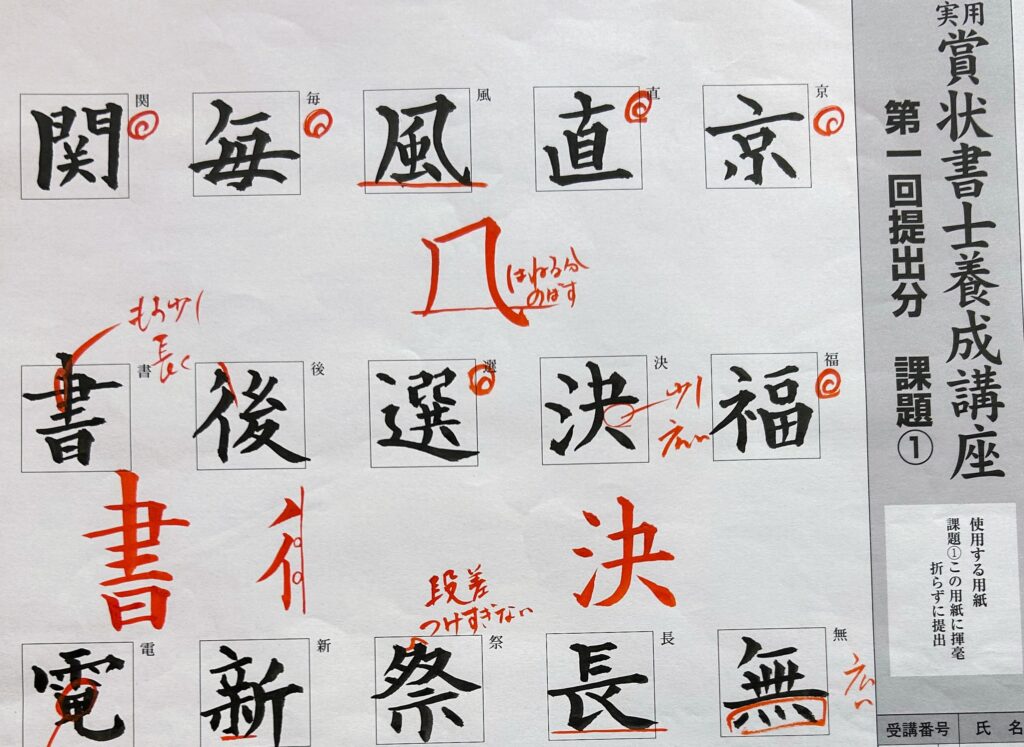 実用
賞状書士養成講座
第一回提出分 課題①
使用する用紙
課題①この用紙に揮毫
折らずに提出
受講番号
氏名
京
京
直
直
風
風
はねる分
のばす
毎
毎
関
関
福
福
決
決
少し
広い
決
選
選
後
後
書
書
もう少し
長く
書
無
無
広い
長
長
祭
祭
段差
つけすぎない
新
新
電
電